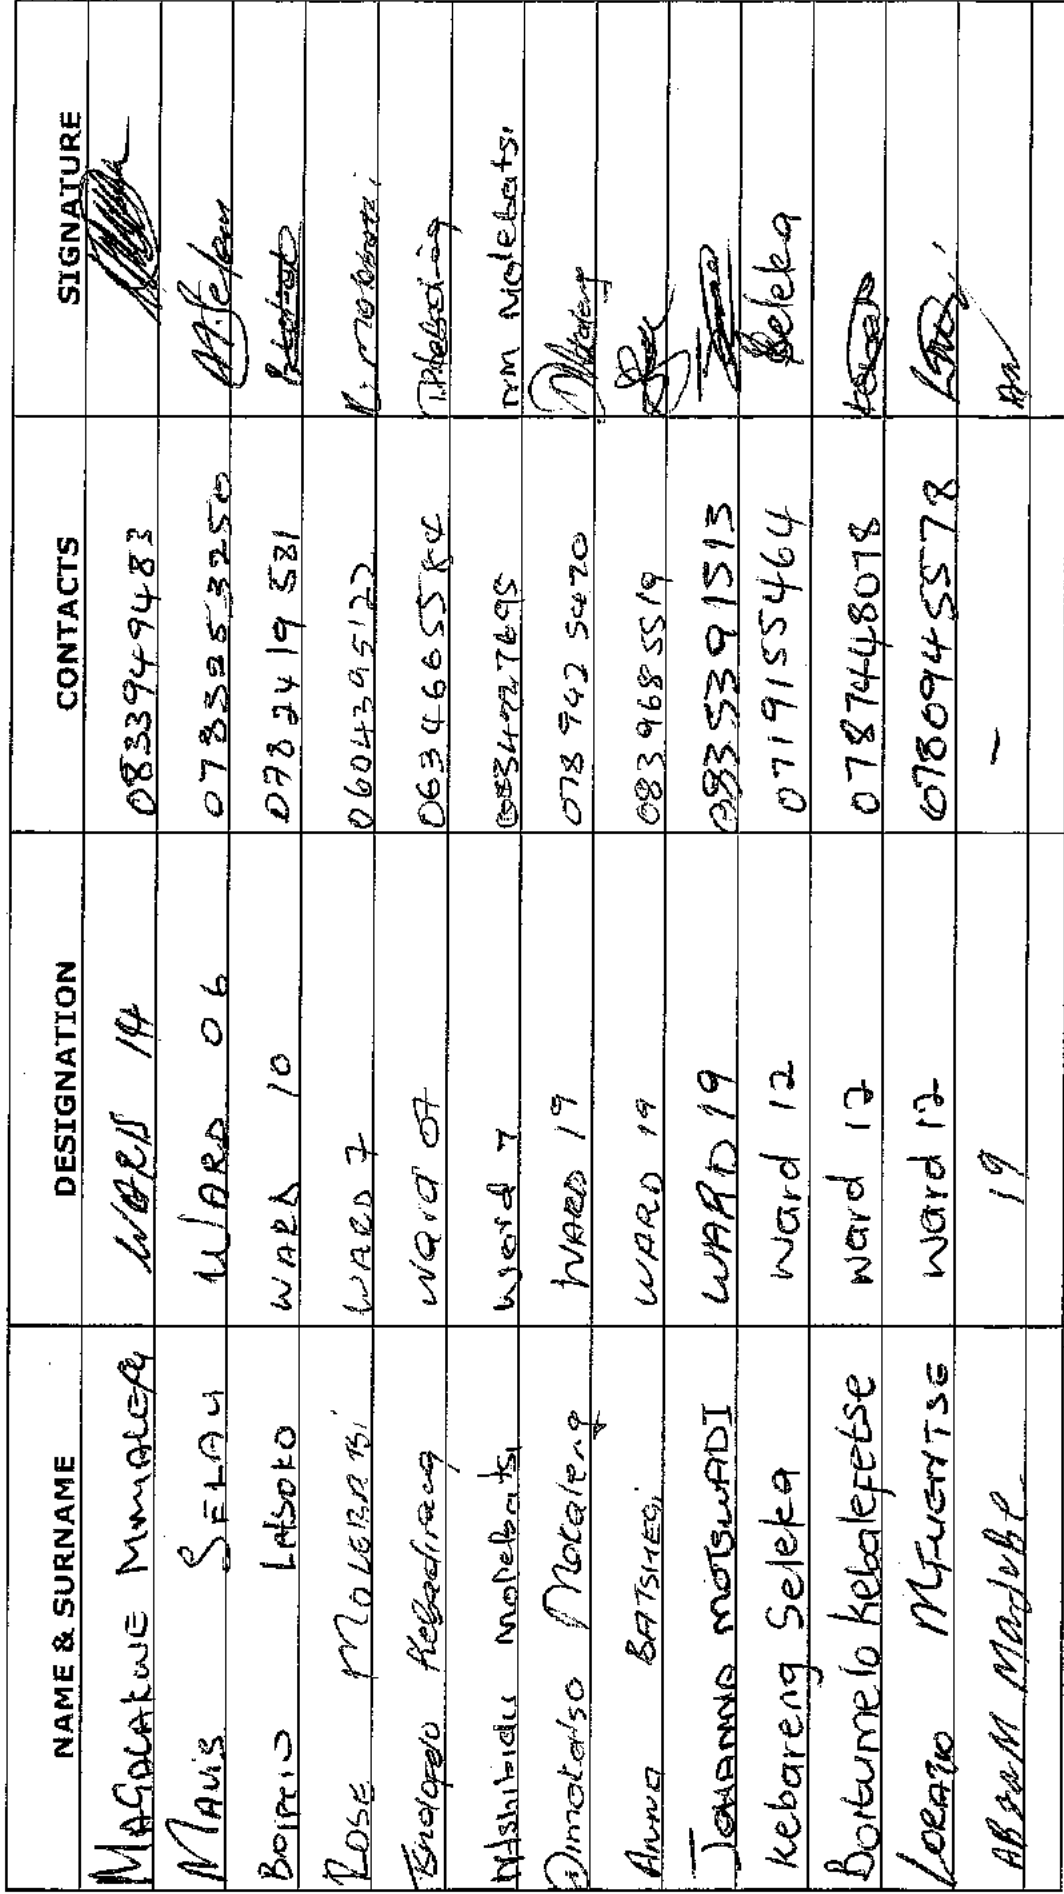 NAME & SURNAME DESIGNATION CONTACTS SIGNATURE
MAGALAKWE MMALEFA WARD 14 0833949483
MAVIS SELAU WARD 06 0783253250 M. Selau
BOIPELO LETSOKO WARD 10 0782419581
ROSE MOLEBATSI WARD 7 0604395122 R. Molebatsi
Kebadireng Ward 07 0634665584
Molebatsi Ward 7 MM Molebatsi
Dimakatso Mokaleng WARD 19 0789425470
Anna BATSHEGI WARD 19 0839685519
JOHANNA MOTSWADI WARD 19 0835391513
Kebareng Seleka Ward 12 0719155464 Seleka
Boitumelo Kebalepetse Ward 12 0787448078
LORATO Ward 12 0780945578
ABRAM Madube 19 -